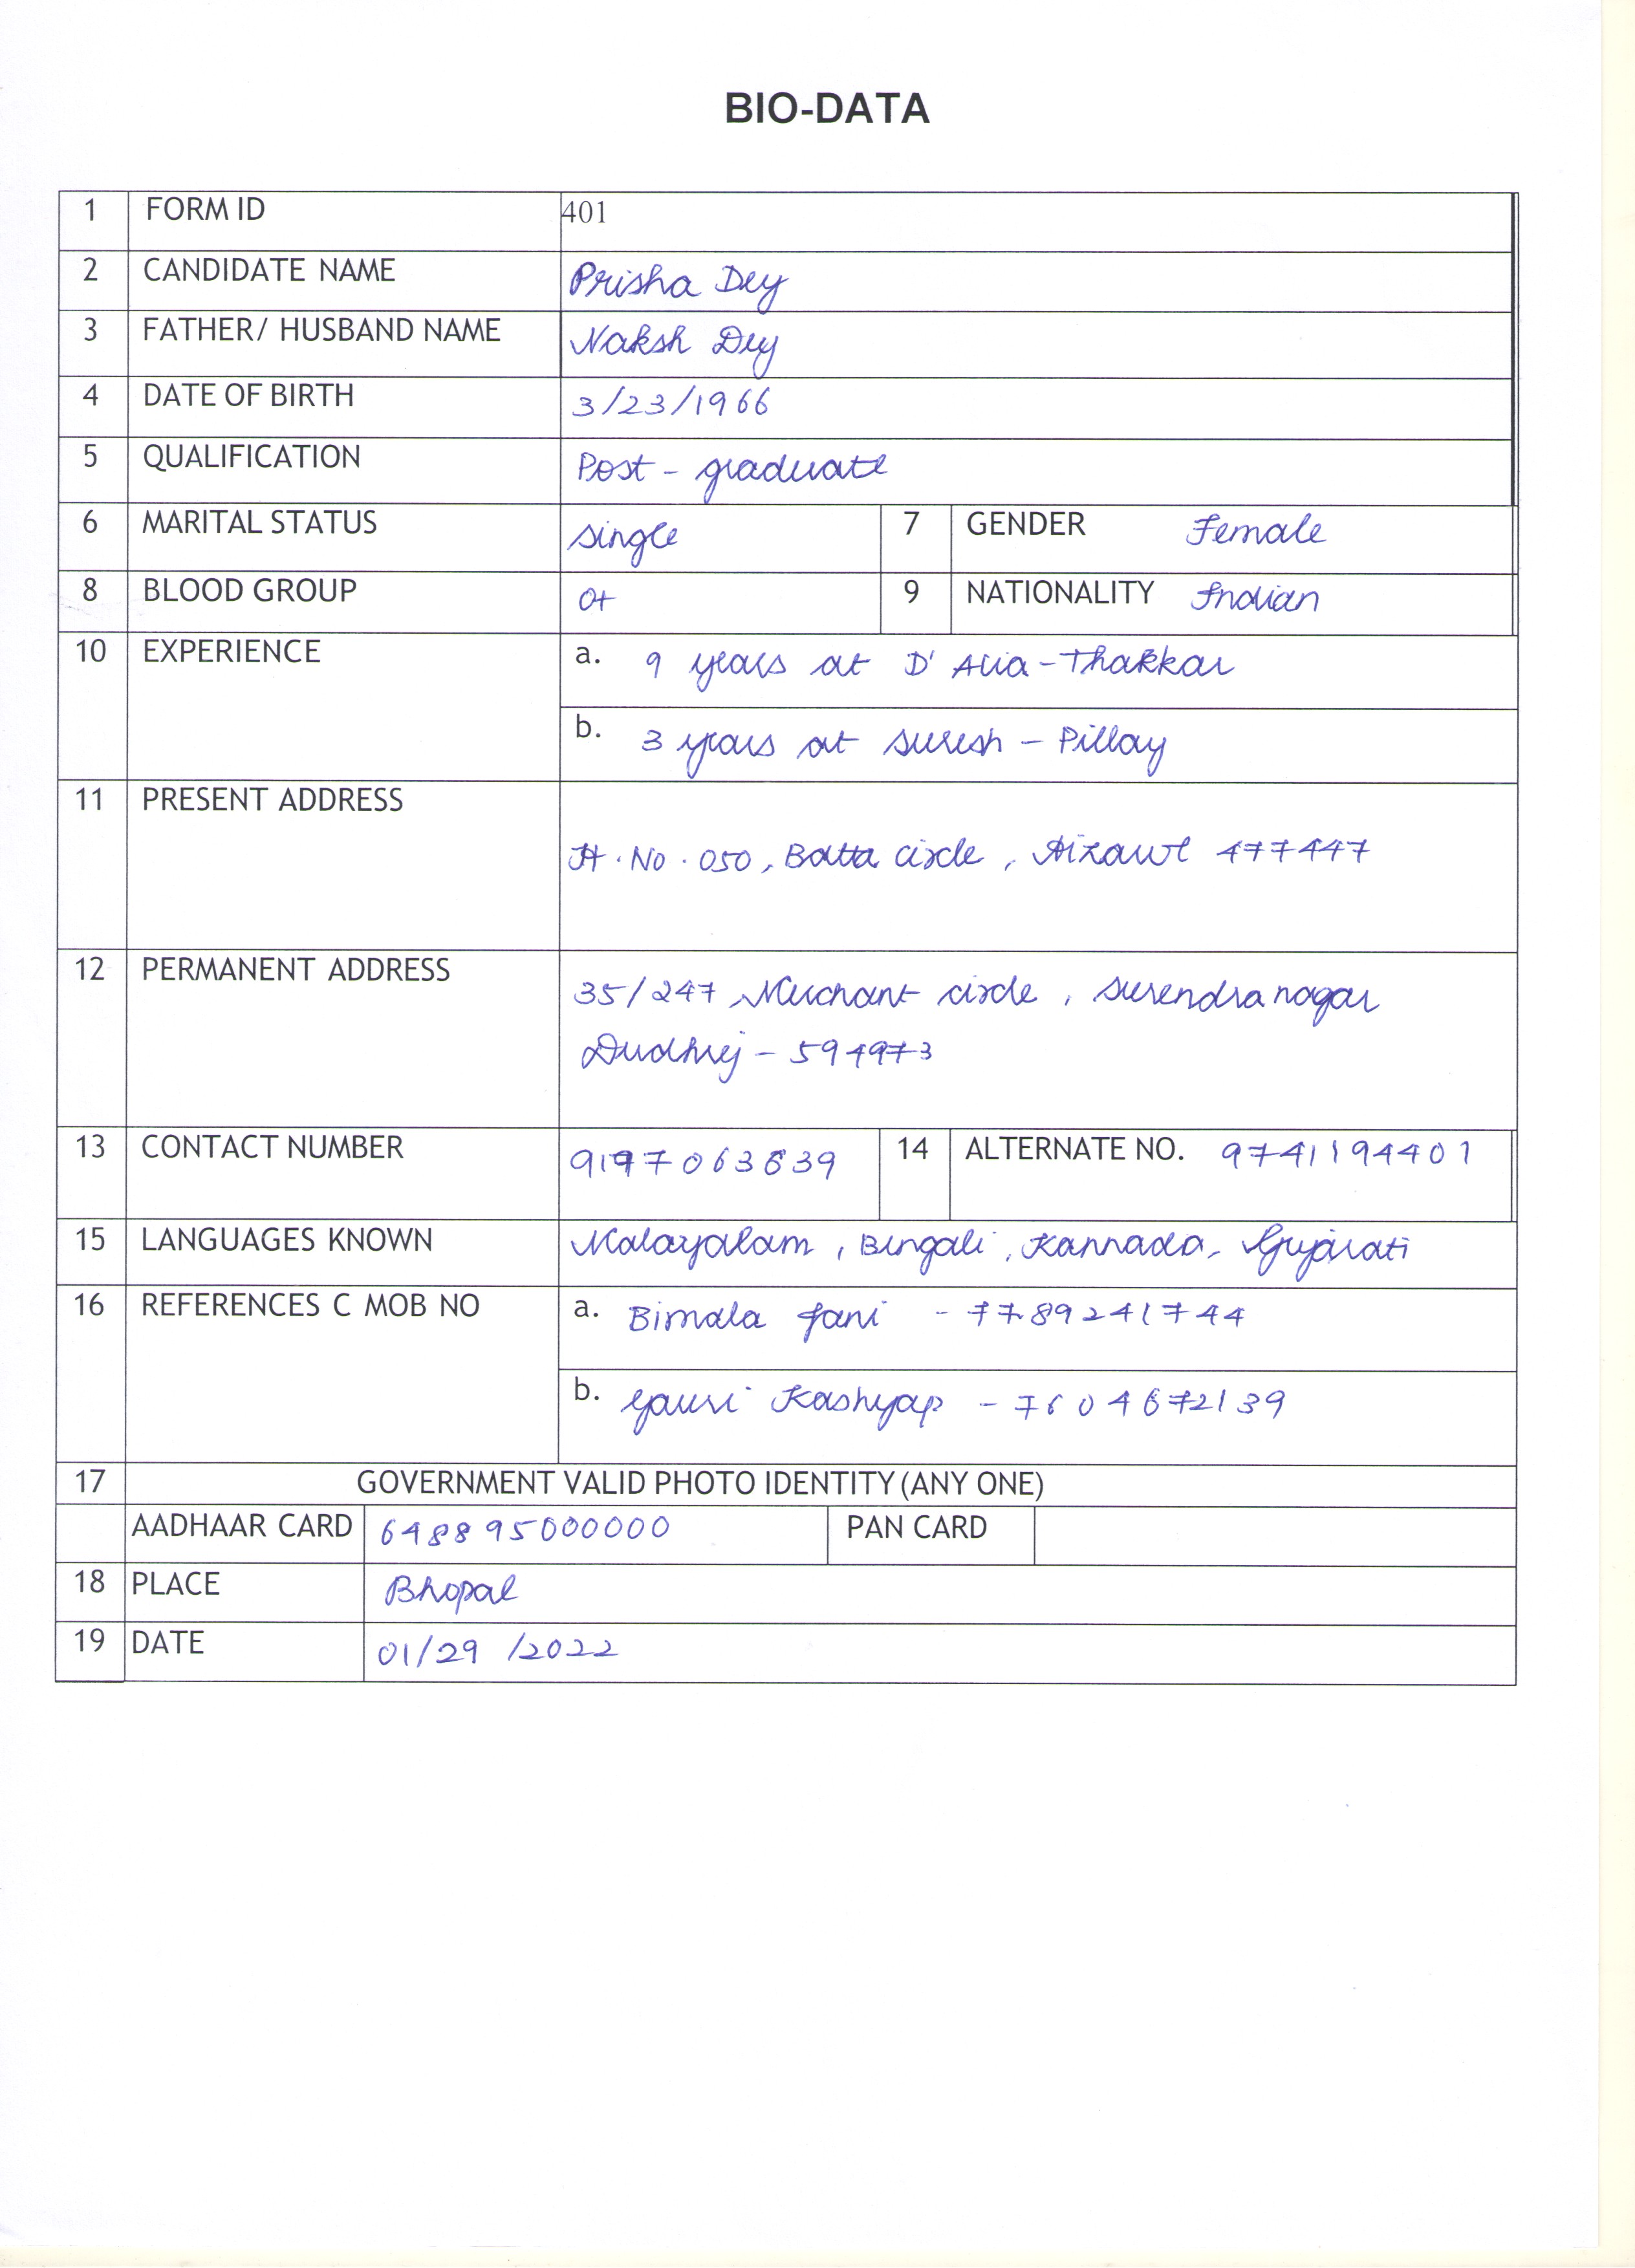 BIO-DATA
1 FORM ID 401
2 CANDIDATE NAME Prisha Dey
3 FATHER/ HUSBAND NAME Naksh Dey
4 DATE OF BIRTH 3/23/1966
5 QUALIFICATION Post - graduate
6 MARITAL STATUS single 7 GENDER Female
8 BLOOD GROUP O+ 9 NATIONALITY Indian
10 EXPERIENCE a. 9 years at D' Alia - Thakkar
b. 3 years at suresh - Pillay
11 PRESENT ADDRESS
H. No. 050, Batta circle, Aizawl 477447
12 PERMANENT ADDRESS 35/247 Merchant circle, surendra nagar
Dudhrej - 594973
13 CONTACT NUMBER 9197063639 14 ALTERNATE NO. 9741194401
15 LANGUAGES KNOWN Malayalam, Bengali, Kannada, Gujarati
16 REFERENCES C MOB NO a. Bimala Jani - 7789241744
b. Gauri Kashyap - 7604672139
17 GOVERNMENT VALID PHOTO IDENTITY (ANY ONE)
AADHAAR CARD 648895000000 PAN CARD
18 PLACE Bhopal
19 DATE 01/29/2022